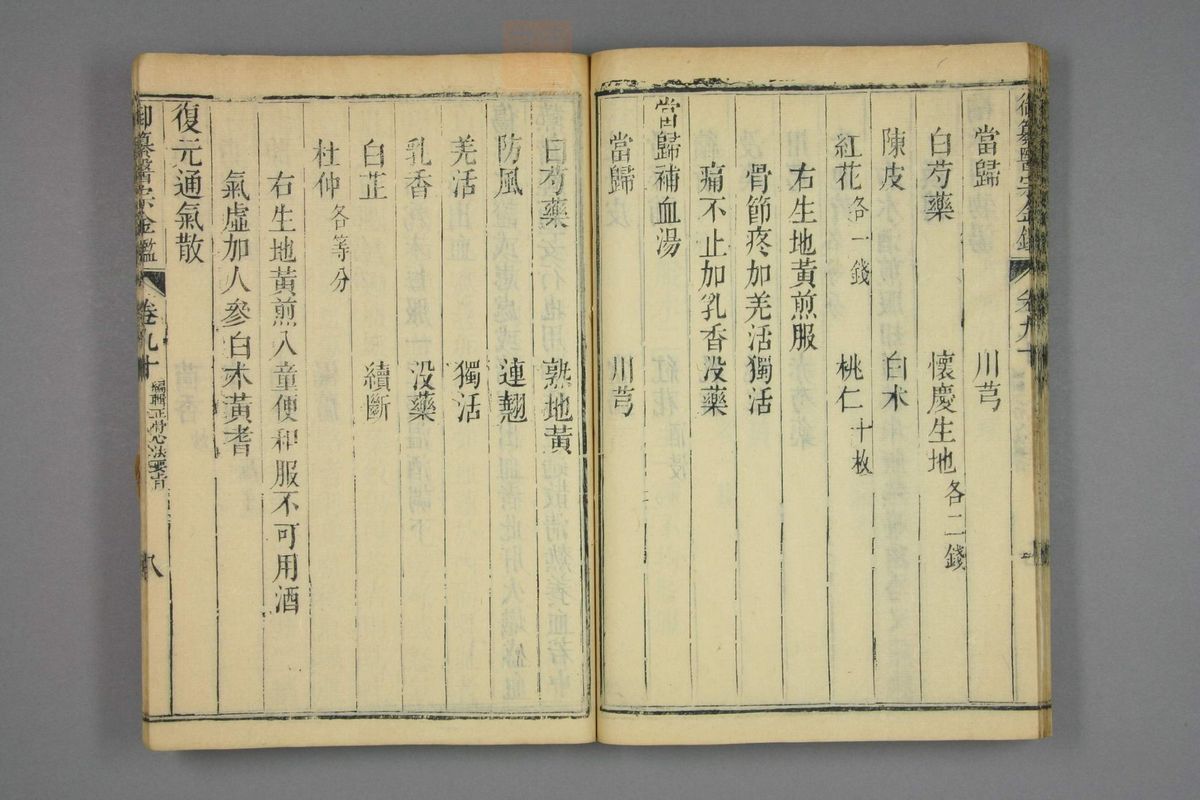 御纂醫宗金鑑
卷九十
當歸 川芎
白芍藥 懷慶生地各二錢
陳皮 白朮
紅花各一錢 桃仁十枚
右生地黃煎服
骨節疼加羌活獨活
痛不止加乳香沒藥
當歸補血湯
當歸 川芎
白芍藥 熟地黃
防風 連翹
羌活 獨活
乳香 沒藥
白芷 續斷
杜仲各等分
右生地黃煎入童便和服不可用酒
氣虛加人參白朮黃耆
復元通氣散
御纂醫宗金鑑
卷九十
編輯正骨心法要旨
八